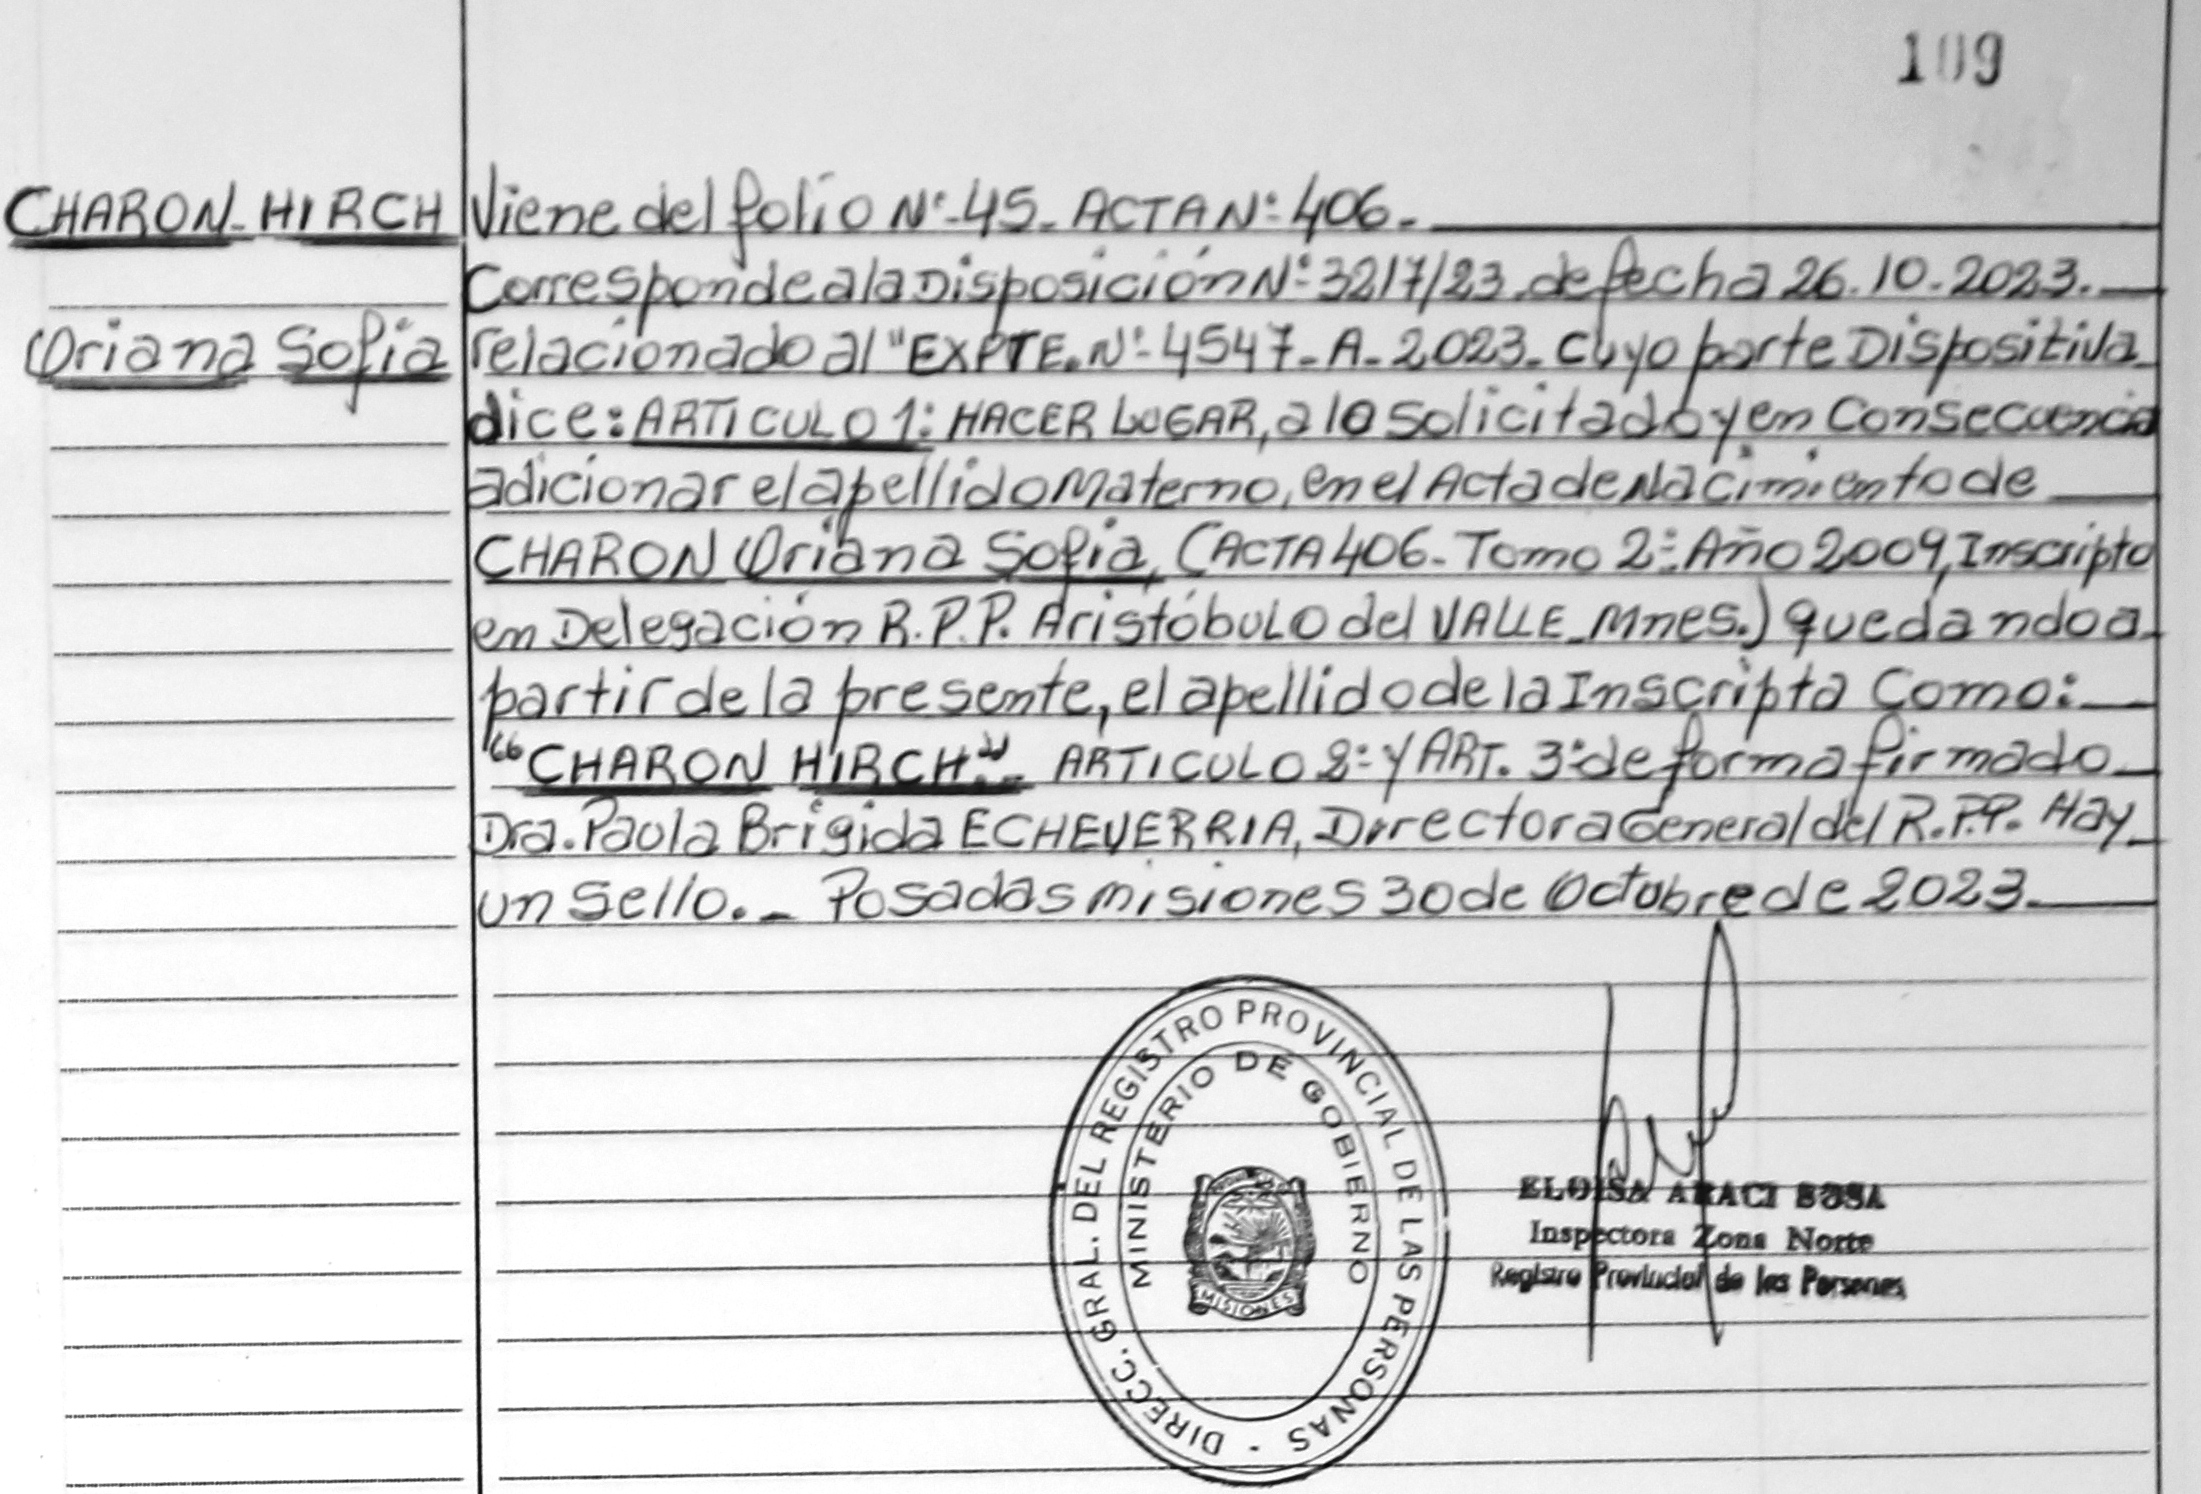 109
CHARON-HIRCH
Oriana Sofia
Viene del folio Nº-45- ACTA Nº 406.-
Corresponde a la Disposición Nº 3217/23 de fecha 26.10.2023.-
relacionado al "EXPTE. Nº-4547-A-2023- Cuyo parte Dispositiva
dice: ARTICULO 1: HACER LUGAR, a lo Solicitado y en Consecuencia
adicionar el apellido Materno, en el Acta de Nacimiento de
CHARON Oriana Sofia, (ACTA 406- Tomo 2º Año 2009, Inscripto
en Delegación R.P.P. Aristóbulo del VALLE-Mnes.) quedando a
partir de la presente, el apellido de la Inscripta Como:
"CHARON HIRCH".- ARTICULO 2º Y ART. 3º de forma firmado
Dra. Paola Brigida ECHEVERRIA, Directora General del R.P.P. Hay
un Sello.- Posadas misiones 30 de Octubre de 2023.
DIRECC. GRAL. DEL REGISTRO PROVINCIAL DE LAS PERSONAS -
MINISTERIO DE GOBIERNO
MISIONES
ELOISA ARACI SOSA
Inspectora Zona Norte
Registro Provincial de las Personas